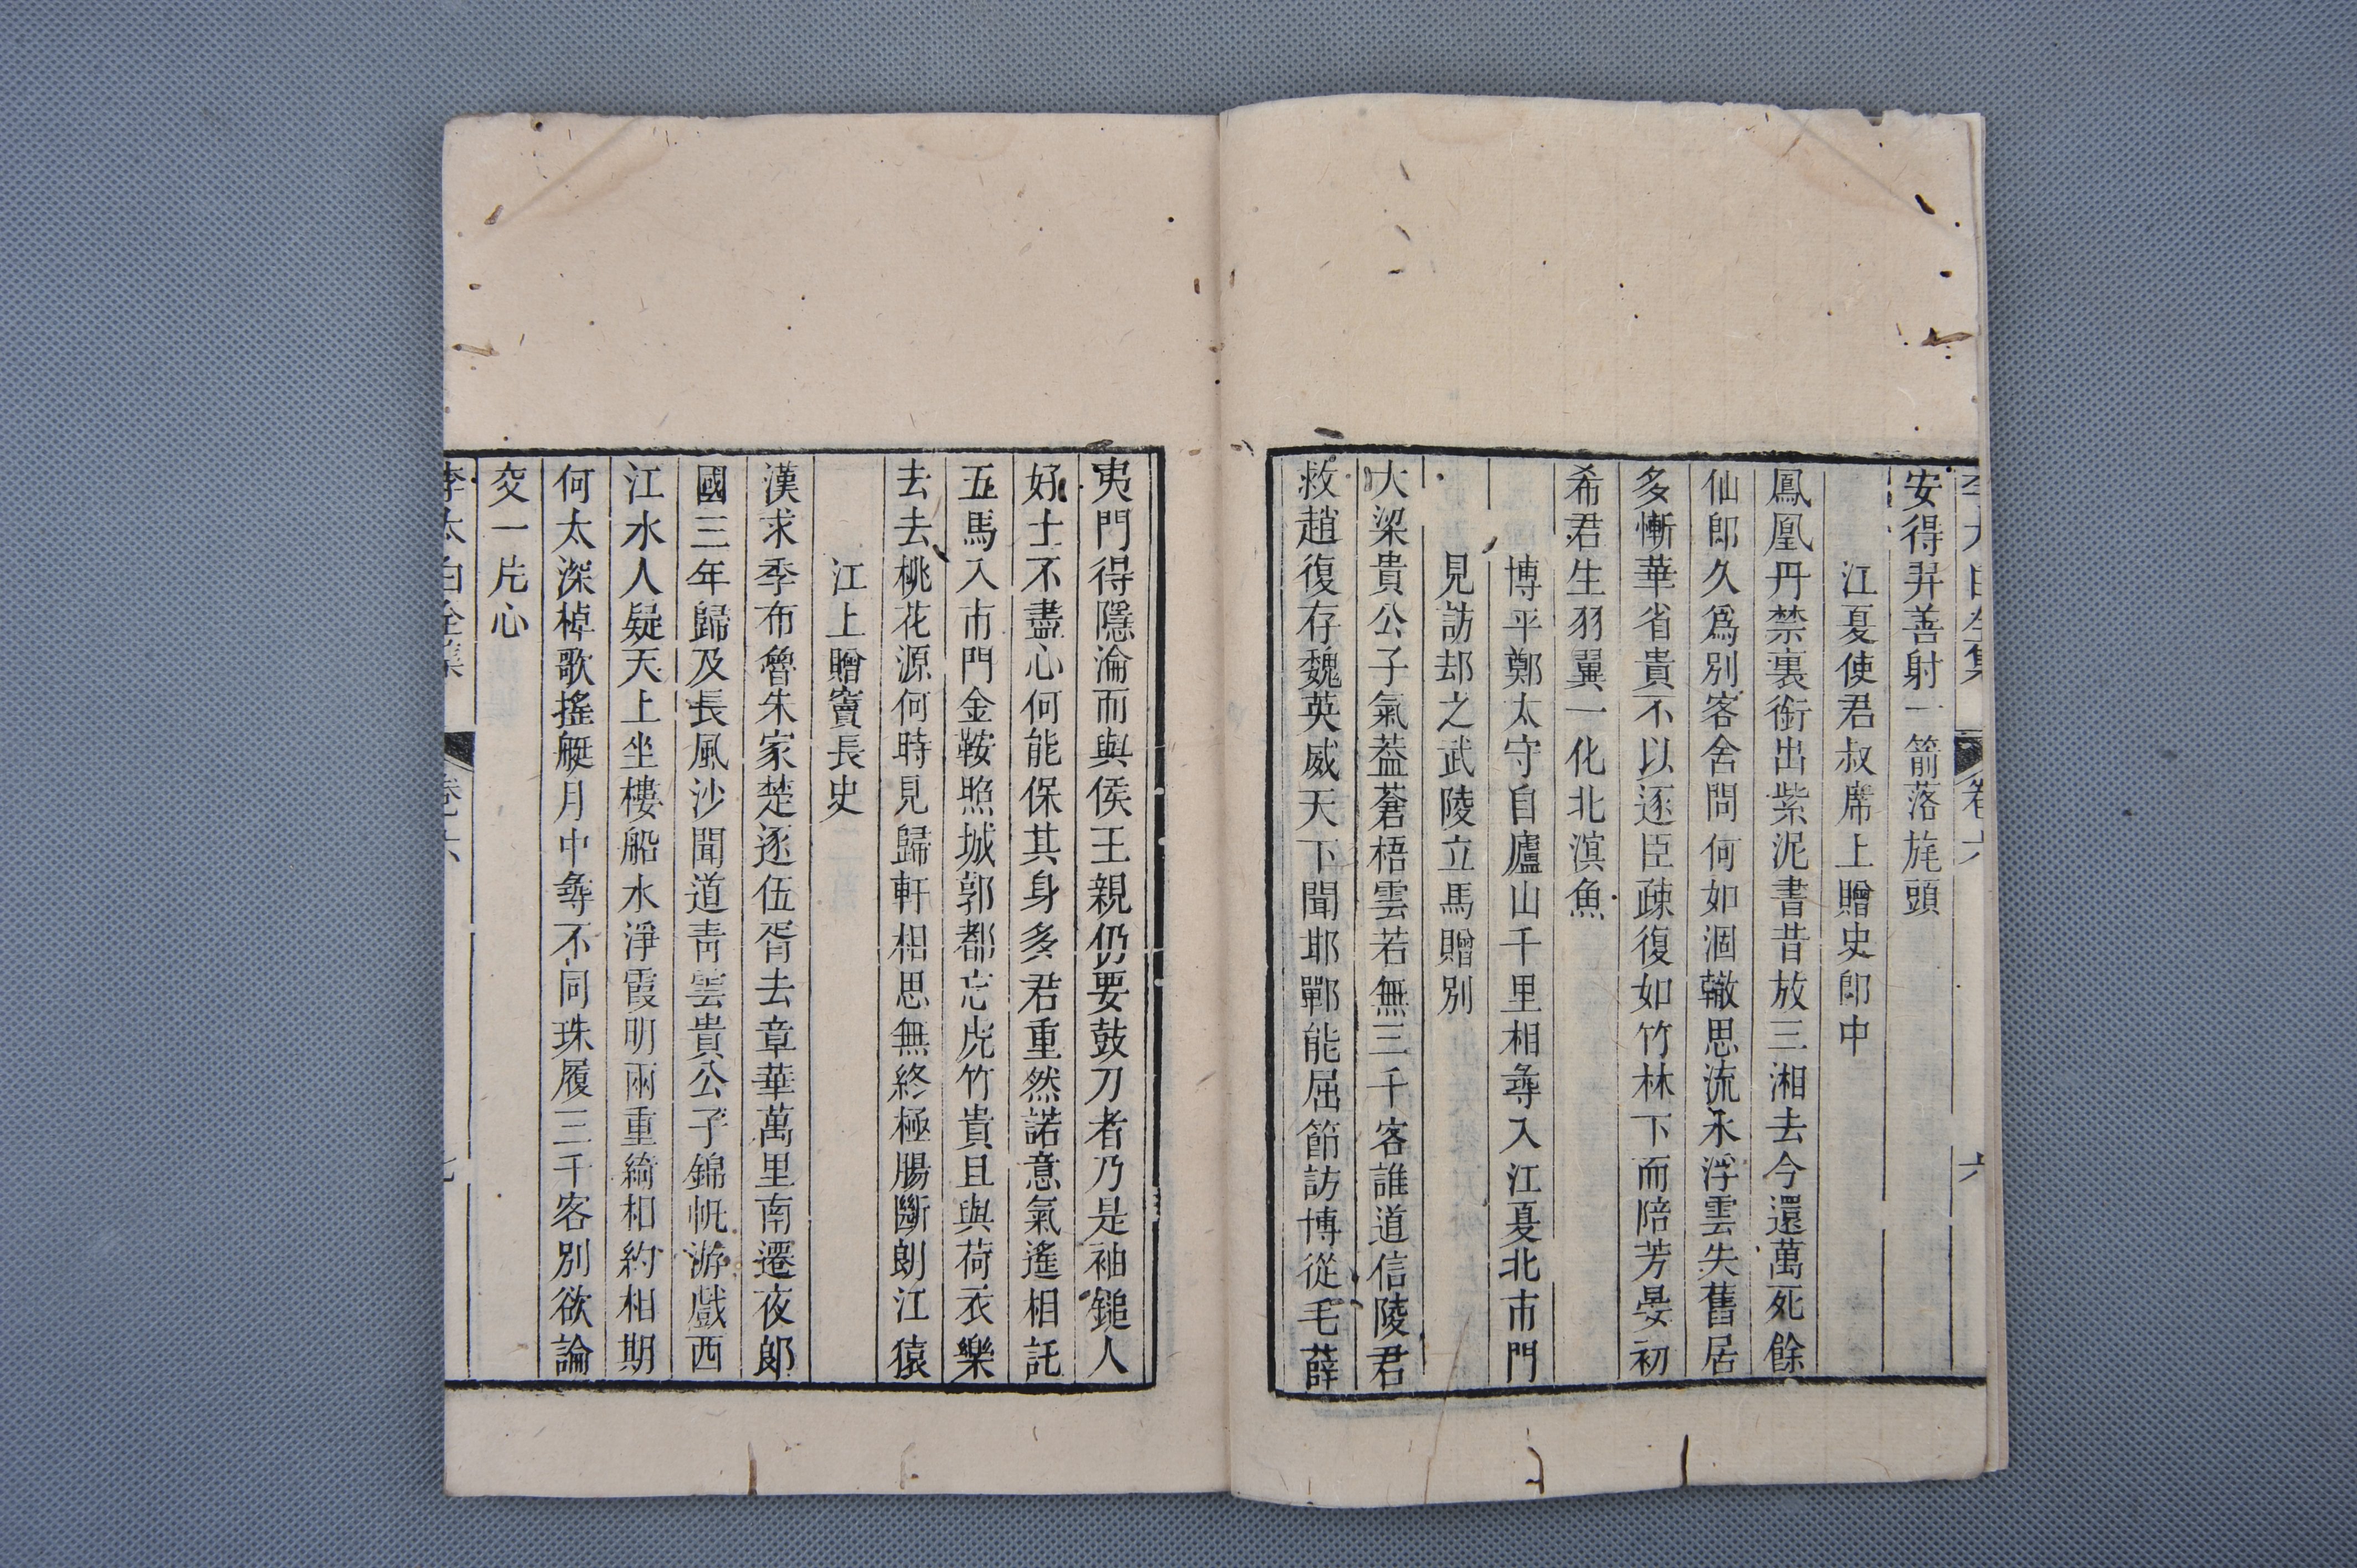 安得羿善射一箭落旄頭
江夏使君叔席上贈史郎中
鳳凰丹禁裏銜出紫泥書昔放三湘去今還萬死餘
仙郎久爲別客舍問何如涸轍思流水浮雲失舊居
多慚華省貴不以逐臣疎復如竹林下而陪芳晏初
希君生羽翼一化北溟魚
博平鄭太守自廬山千里相尋入江夏北市門
見訪却之武陵立馬贈別
大梁貴公子氣葢蒼梧雲若無三千客誰道信陵君
救趙復存魏英威天下聞邯鄲能屈節訪博從毛薛
夷門得隱淪而與侯王親仍要鼓刀者乃是袖鎚人
好士不盡心何能保其身多君重然諾意氣遙相託
五馬入市門金鞍照城郭都忘虎竹貴且與荷衣樂
去去桃花源何時見歸軒相思無終極腸斷朗江猿
江上贈竇長史
漢求季布魯朱家楚逐伍胥去章華萬里南遷夜郎
國三年歸及長風沙聞道青雲貴公子錦帆游戲西
江水人疑天上坐樓船水淨霞明兩重綺相約相期
何太深棹歌搖艇月中尋不同珠履三千客別欲論
交一片心
李太白全集 卷六 七